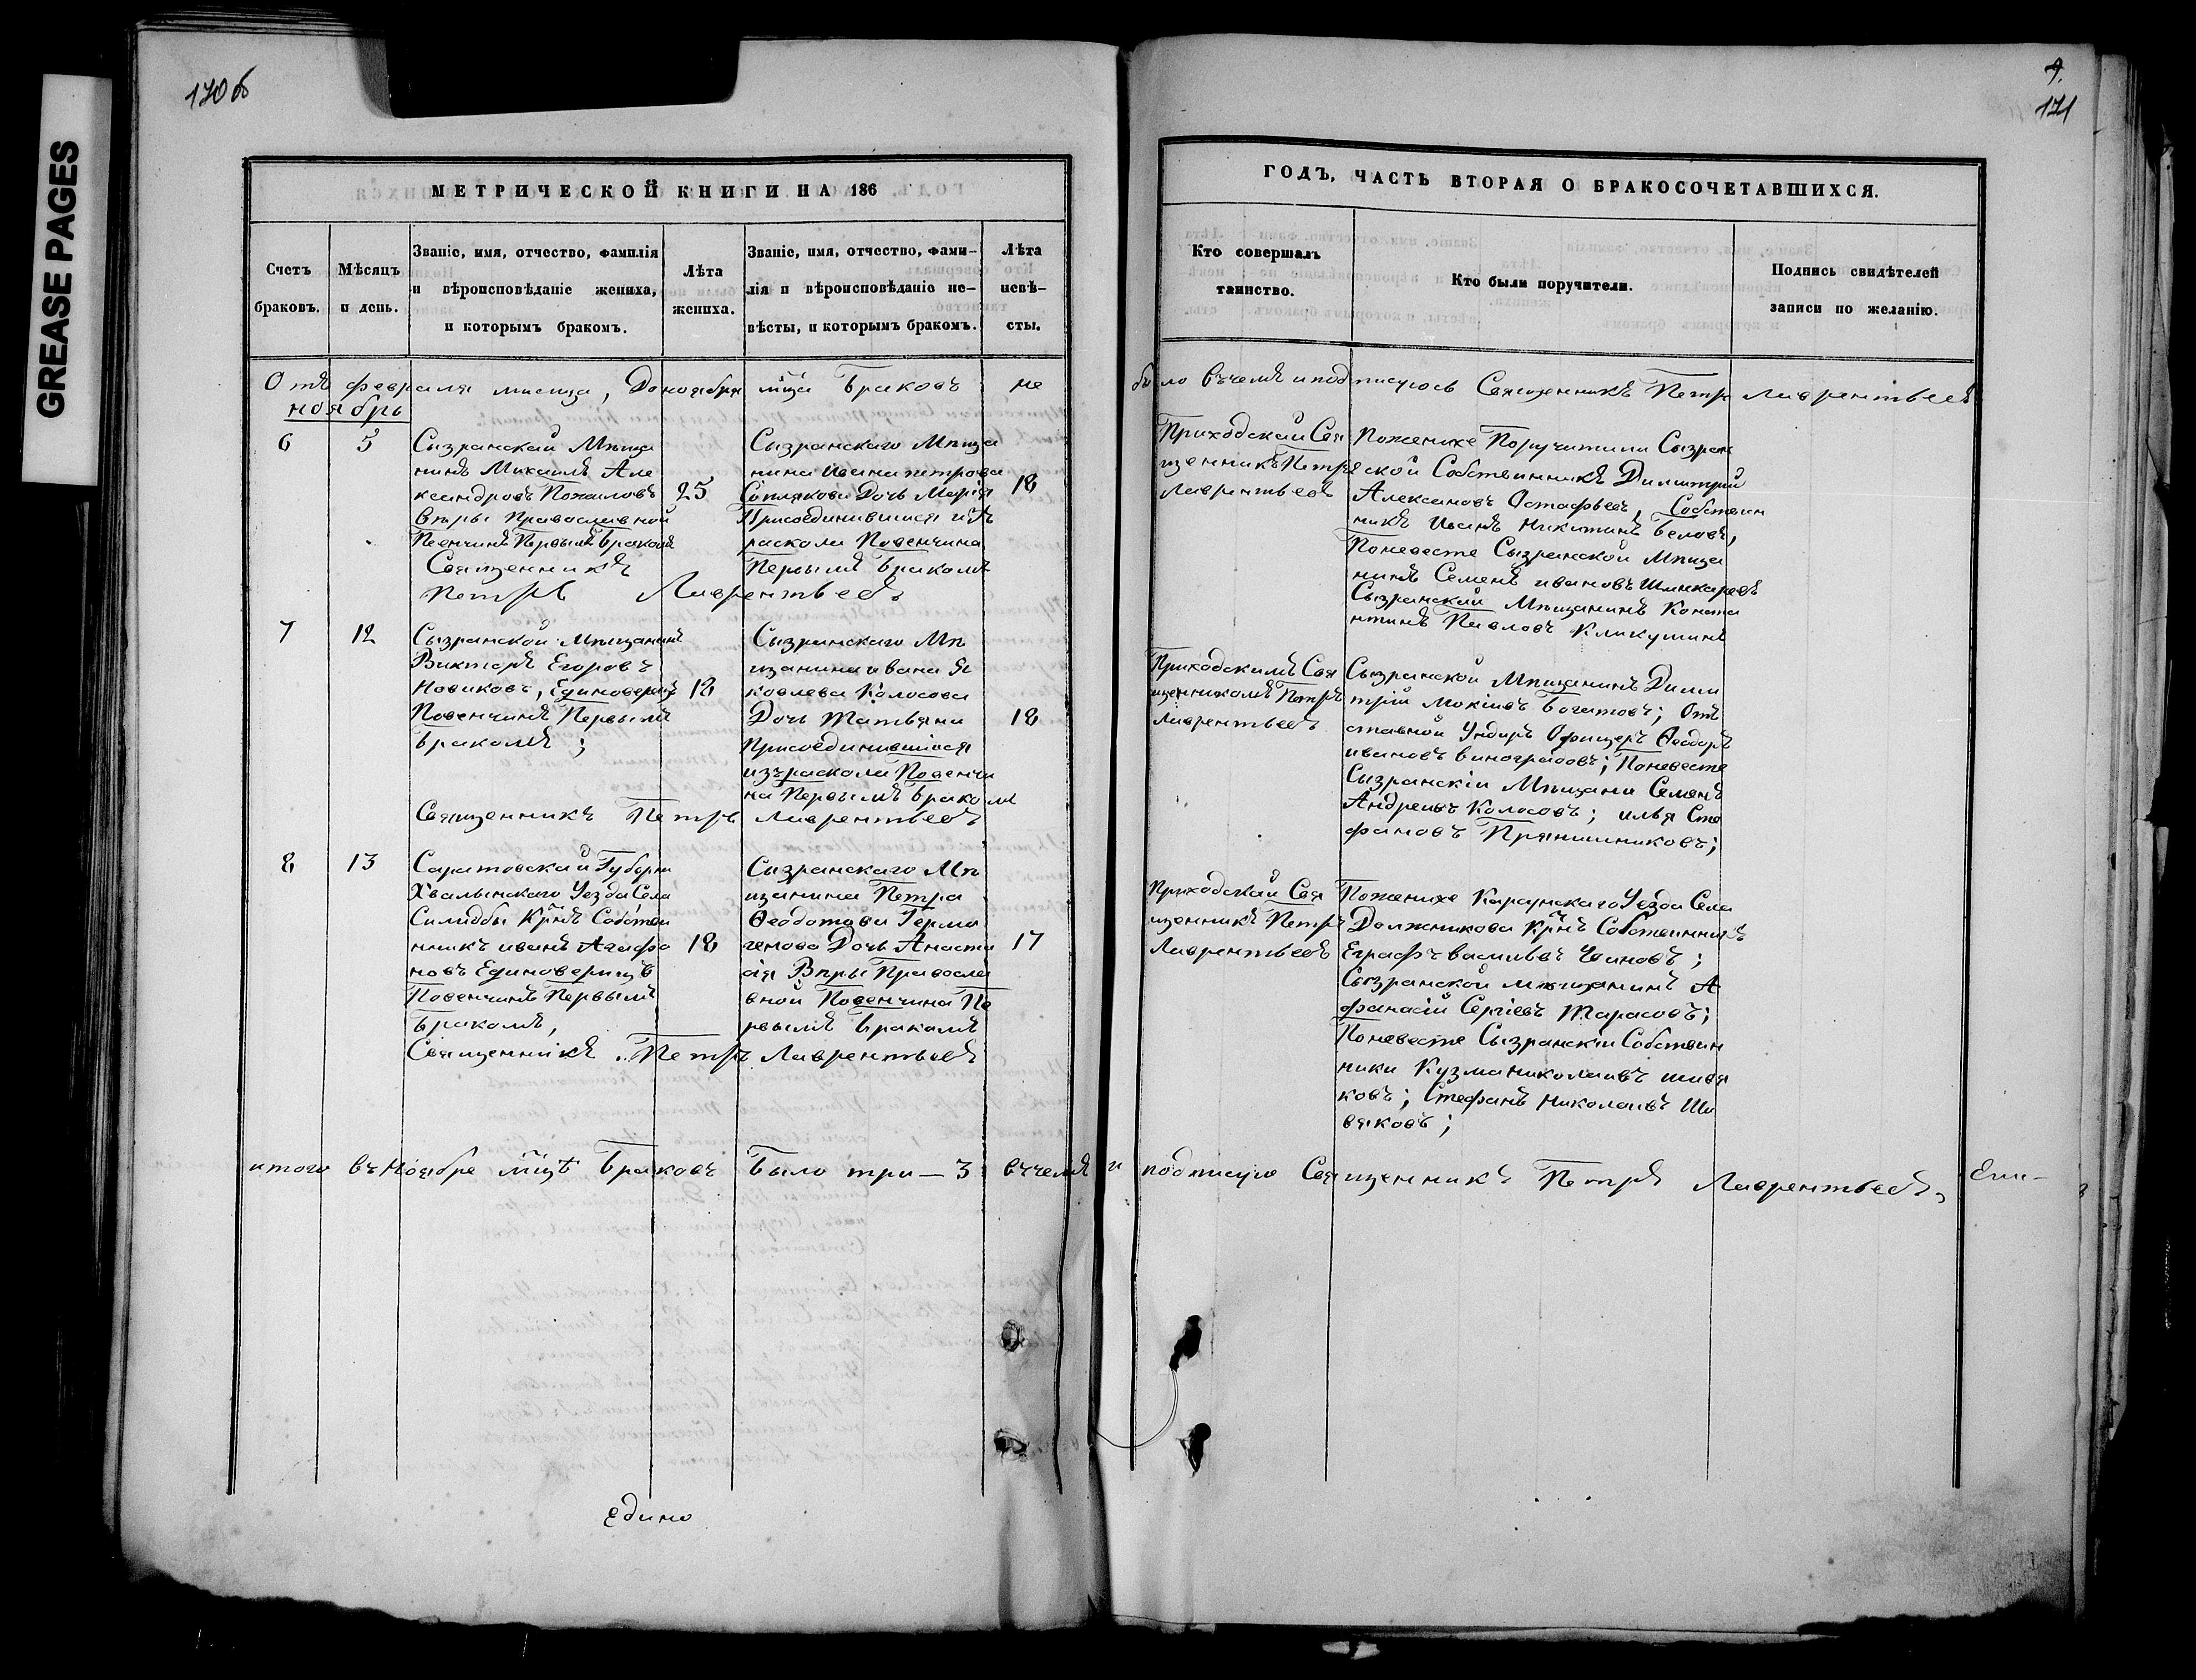 GREASE PAGES
170 об
9.
171
МЕТРИЧЕСКОЙ КНИГИ НА 186
Счетъ
браковъ.
Мѣсяцъ
и день.
Званіе, имя, отчество, фамилія
и вѣроисповѣданіе жениха,
и которымъ бракомъ.
Лѣта
жениха.
Званіе, имя, отчество, фами-
лія и вѣроисповѣданіе не-
вѣсты, и которымъ бракомъ.
Лѣта
невѣ-
сты.
ГОДЪ, ЧАСТЬ ВТОРАЯ О БРАКОСОЧЕТАВШИХСЯ.
Кто совершалъ
таинство.
Кто были поручители.
Подпись свидѣтелей
записи по желанію.
Отъ февраля месеца, До ноября мца Браковъ не было въчемъ и подписуюсь Священникъ Петръ Лаврентьевъ
ноябрь
6
5
Сызранскай Мѣща
нинъ Михаилъ Але
ксандровъ
Вѣры Православной
Первымъ Бракомъ
Священникъ
Петръ Лаврентьевъ
25
Сызранскаго Мѣща
нина Ивана петрова
Дочь Марія
Присоединившися изъ
раскола Повенчина
Первымъ Бракомъ
18
Приходскай Свя
щенникъ Петръ
Лаврентьевъ
Пожених﻿е Поручители Сызран
ской Собственникъ Димитрий
Остафьевъ, Собствен
никъ Иванъ Никитинъ Беловъ,
Поневесте Сызранской Мѣща
нинъ Семенъ ивановъ
Сызранскай Мѣщанинъ Конста
нтинъ Павловъ Кликушинъ
7
12
Сызранской Мѣщанинъ
Викторъ Егоровъ
Новиковъ, Единоверецъ
Повенчинъ Первымъ
Бракомъ;
18
Сызранскаго Мѣ
щанина ивана Я
ковлева Колосова
Дочь Татьяна
Присоединившіося
изъ раскола Повенчи
на Первымъ Бракомъ
18
Священникъ Петръ Лаврентьевъ
Приходскимъ Свя
щенникомъ Петръ
Лаврентьевъ
Сызранской Мѣщанинъ Дими
трій Мокіивъ Богатовъ; Отъ
ставной Ундиръ Офицеръ Ѳеодоръ
ивановъ виноградовъ; Поневесте
Сызранскіи Мѣщани Семенъ
Андреивъ Колосовъ; илья Сте
фановъ Прянишниковъ;
8
13
Саратовскай Губерни
Хвалынскаго Уезда Села
Самодѣ
никъ иванъ Агафо
новъ Единоверецъ
Повенчинъ Первымъ
Бракомъ,
Священникъ Петръ Лаврентьевъ
18
Сызранскаго Мѣ
щанина Петра
Ѳеодотова Гермо
генова Дочь Анаста
сія Вѣры Правосла
вной Повенчина Пе
рвымъ Бракомъ
17
Приходскай Свя
щенникъ Петръ
Лаврентьевъ
Поженихе Карсунскаго Уезда Села
Должникова Крнъ Собственникъ
Еграфъ василивъ Чиновъ;
Сызранской мѣщанинъ А
фанасій Сергіевъ Тарасовъ;
Поневесте Сызранскіи Собствен
ники Кузма николаивъ шивя
ковъ; Стефанъ Николаивъ Ши
вяковъ;
итого въ Ноябре мцѣ Браковъ Было три — 3 въчемъ и подписую Священникъ Петръ Лаврентьевъ,
Едино